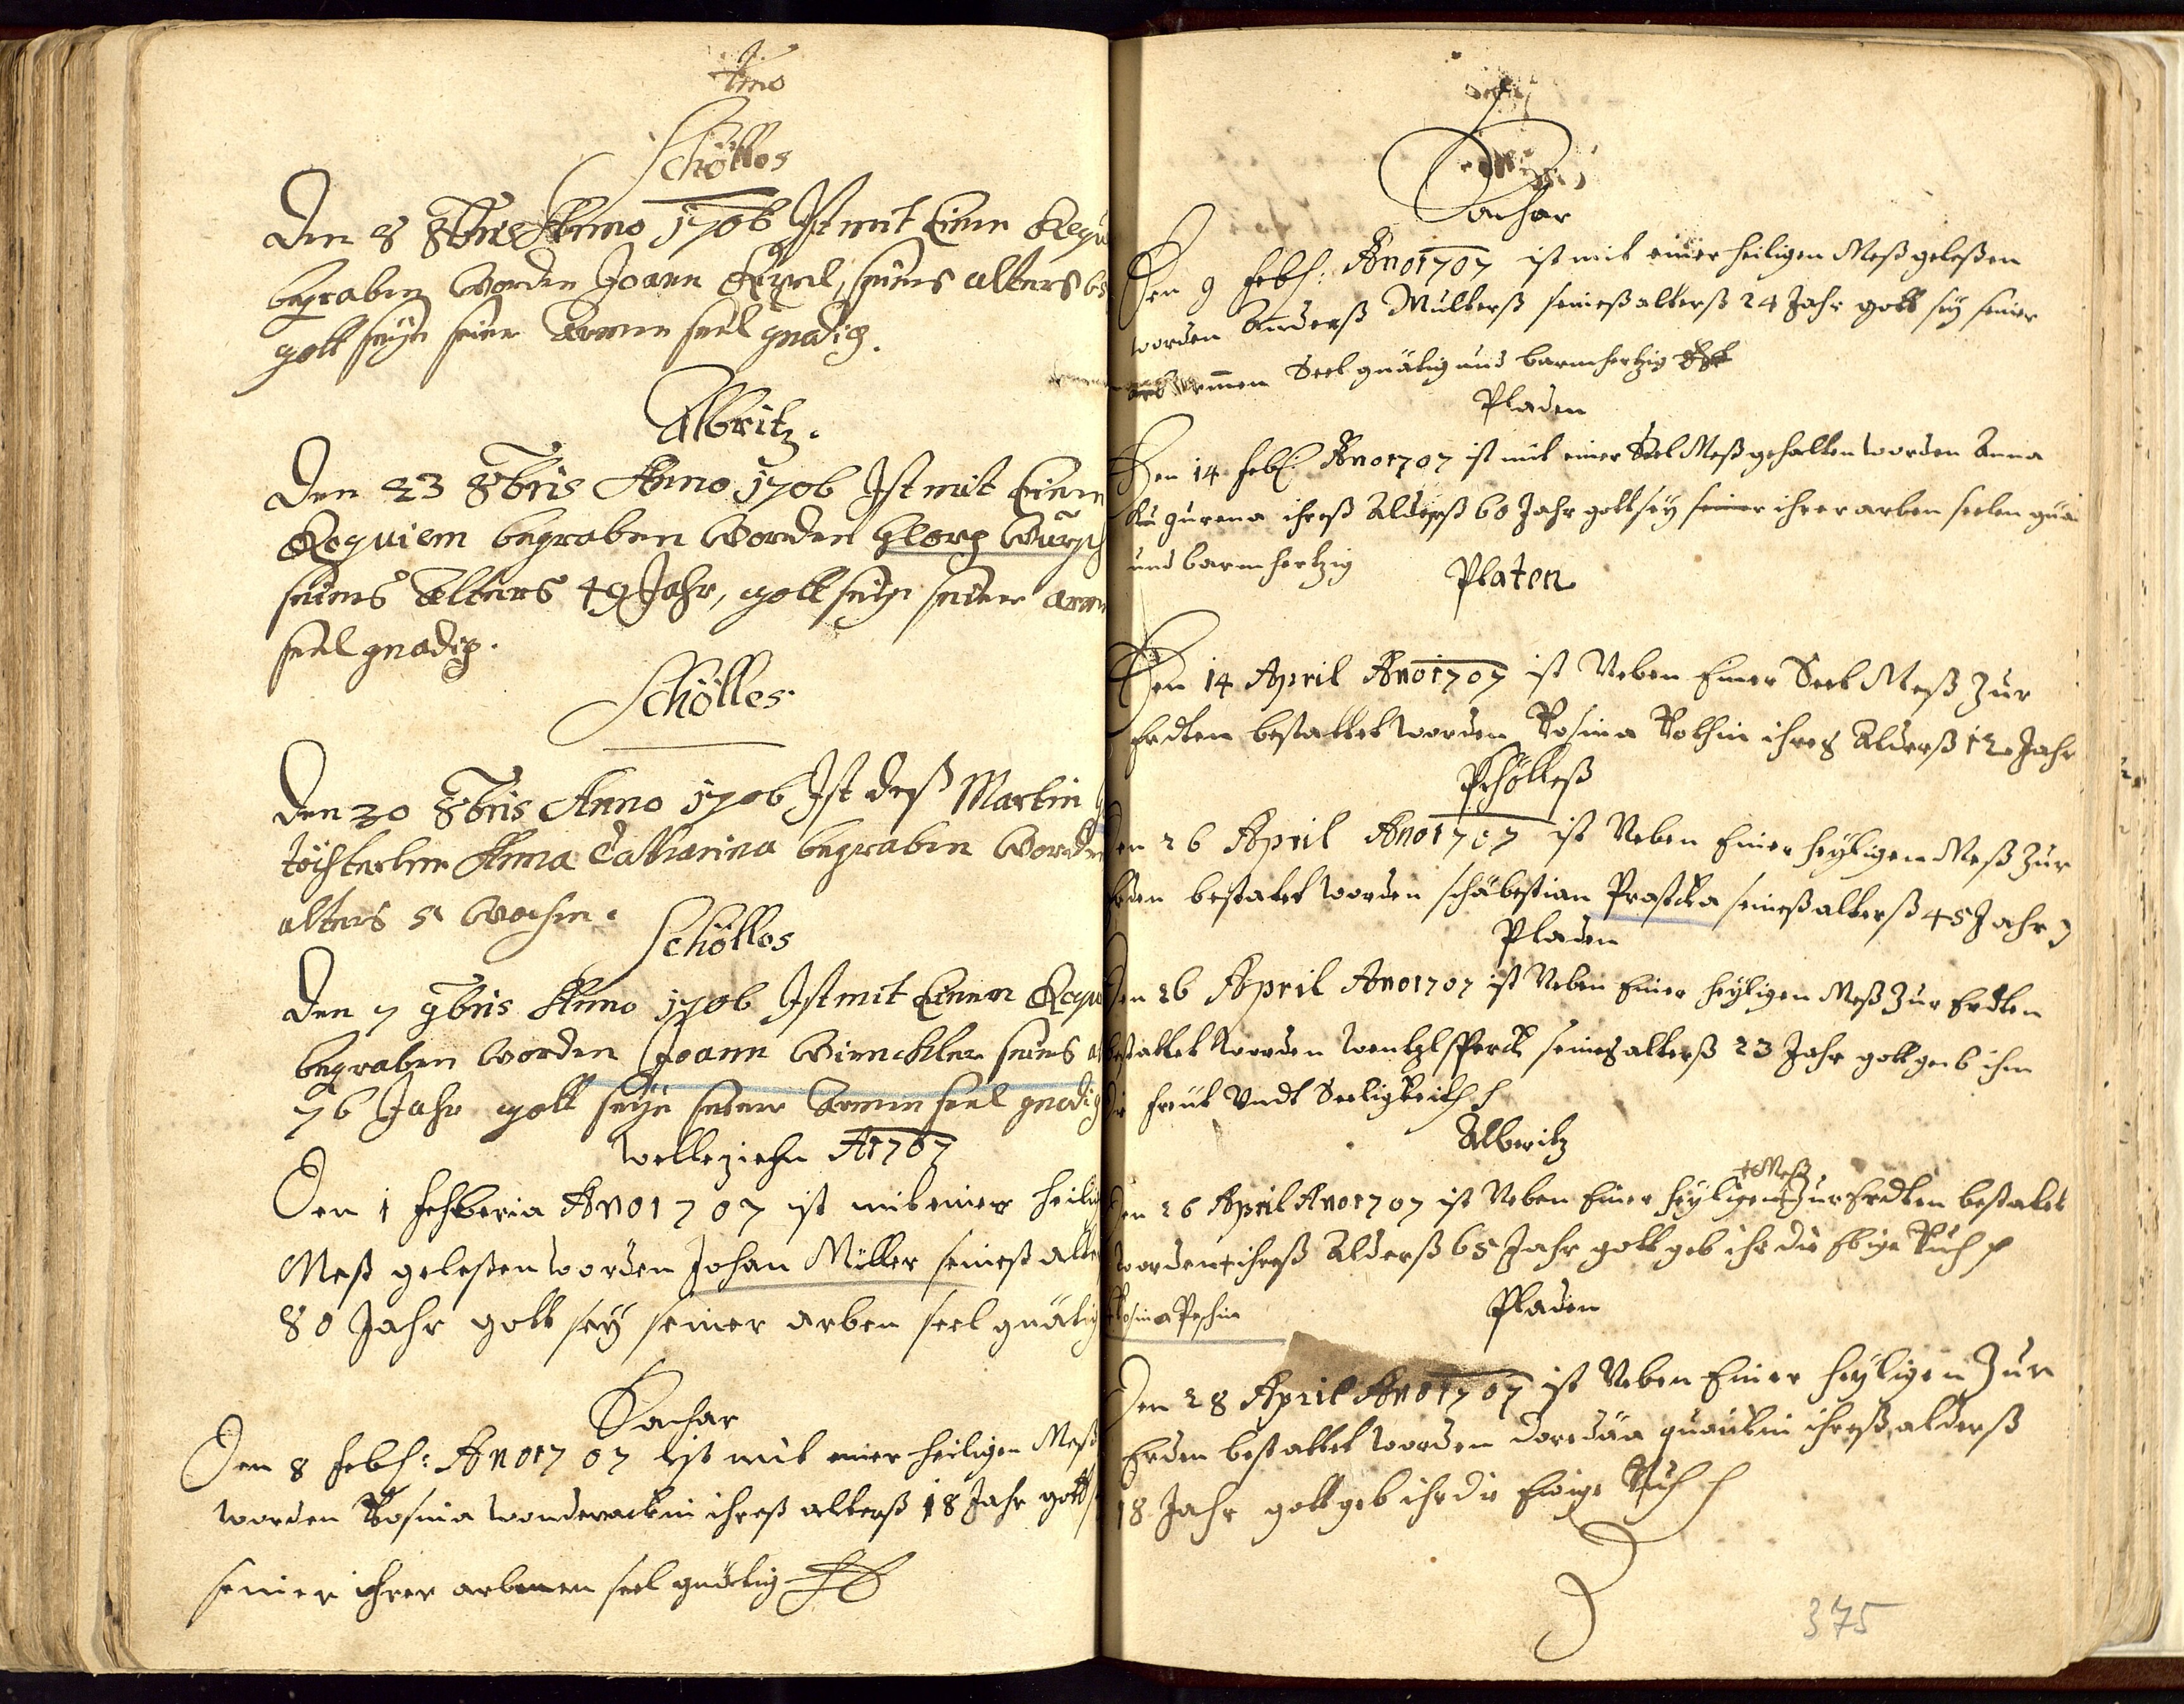 Anno
Schölles
Den 8 8bris Anno 1706 Ist mit Einem Requ
begraben worden Joann seines alters
gott seye seiner Armen seel gnadig.
Albritz.
Den 23 8bris Anno 1706 Ist mit Einem
Requiem begraben worden Georg
seines Alters 49 Jahr, gott seye seiner arm
seel gnadig.
Schölles
Den 30 8bris Anno 1706 Ist deß Martin
töchterlein Anna Catharina begraben worden
alters 5 wochen.
Schölles
Den 7 9bris Anno 1706 Ist mit Einem Requ
begraben worden Joann Winckler seines
76 Jahr gott seye seiner Armen seel gnadig
A1707
Den 1 Fehberia Ano1707 ist mit einer heilig
Meß geleßen worden Johan Müller seineß alte
80 Jahr gott sey seiner arben seel gnätig
Sachar
Den 8 Feb: Ano1707 ist mit einer heiligen Meß
worden Rosina ihreß alterß 18 Jahr gott
seiner ihrer seel gnätig
Sachar
Den 9 Feb: Ano1707 ist mit einer heiligen Meß geleßen
worden Anderß Mullerß seineß alterß 24 Jahr gott sey seiner
armen Seel gnätig und barmhertzig
Pladen
Den 14 Feb: Ano1707 ist mit einer Seel Meß gehalten worden Anna
ihreß Alderß 60 Jahr gott sey seiner ihrer arben seelen gnä
und barmhertzig
Platen
Den 14 April Ano1707 ist Neben Einer Seel Meß Zur
Erdten bestattet worden Rosina Rothin ihreß Alderß 12 Jahr
Schölleß
Den 26 April Ano1707 ist Neben Einer heyligen Meß Zur
Erden bestatet worden schäbestian Prastka seineß alterß 45 Jahr
Pladen
Den 26 April Ano1707 ist Neben Einer heyligen Meß Zur Erdten
bestattet worden seineß alterß 23 Jahr gott geb ihm
die freüt Vndt Seeligkeith
Albritz
+ Meß
Den 26 April Ano1707 ist Neben Einer heyligen + Zur Erdten bestatet
worden + ihreß Alderß 65 Jahr gott geb ihr die Ebige Ruh
+ Rosina Peschin
Pladen
Den 28 April Ano1707 ist Neben Einer heyligen Zur
Erden bestattet worden ihreß alderß
18 Jahr gott geb ihr die Ewige Ruh
375